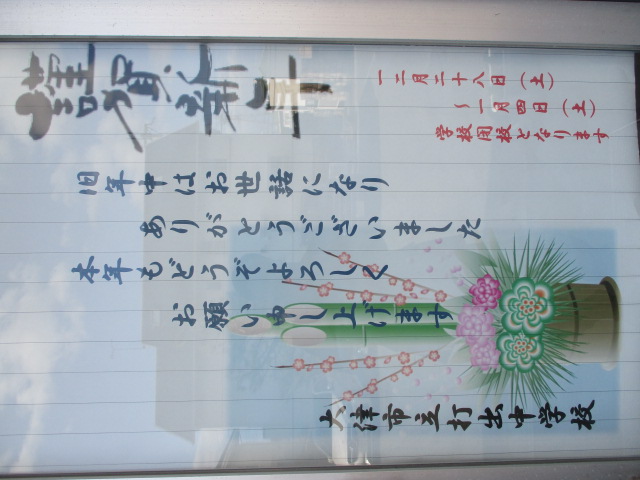 謹賀新年
旧年中はお世話になり
ありがとうございました
本年もどうぞよろしく
お願い申し上げます
大津市立打出中学校
十二月二十八日(土)
~一月四日(土)
学校閉校となります